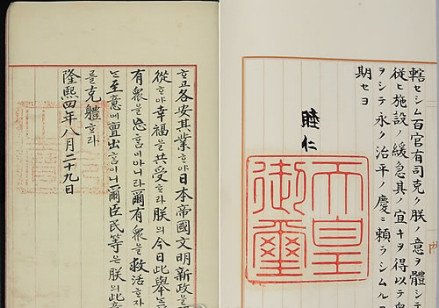 ᄒᆞ고各安其業ᄒᆞ야日本帝國文明新政을
從ᄒᆞ야幸福을共受ᄒᆞ라朕의今日此擧ᄂᆞᆫ
有衆을忘홈이아니라爾有衆을救活ᄒᆞ자
ᄂᆞᆫ至意에亶出홈이니爾臣民等은朕의此意
ᄅᆞᆯ克體ᄒᆞ라
隆熙四年八月二十九日
轄セシム百官有司克ク朕ノ意ヲ體シテ
從ヒ施設ノ緩急其ノ宜キヲ得以テ衆
ヲシテ永ク治平ノ慶ニ賴ラシムル
期セヨ
睦仁
天皇
御璽